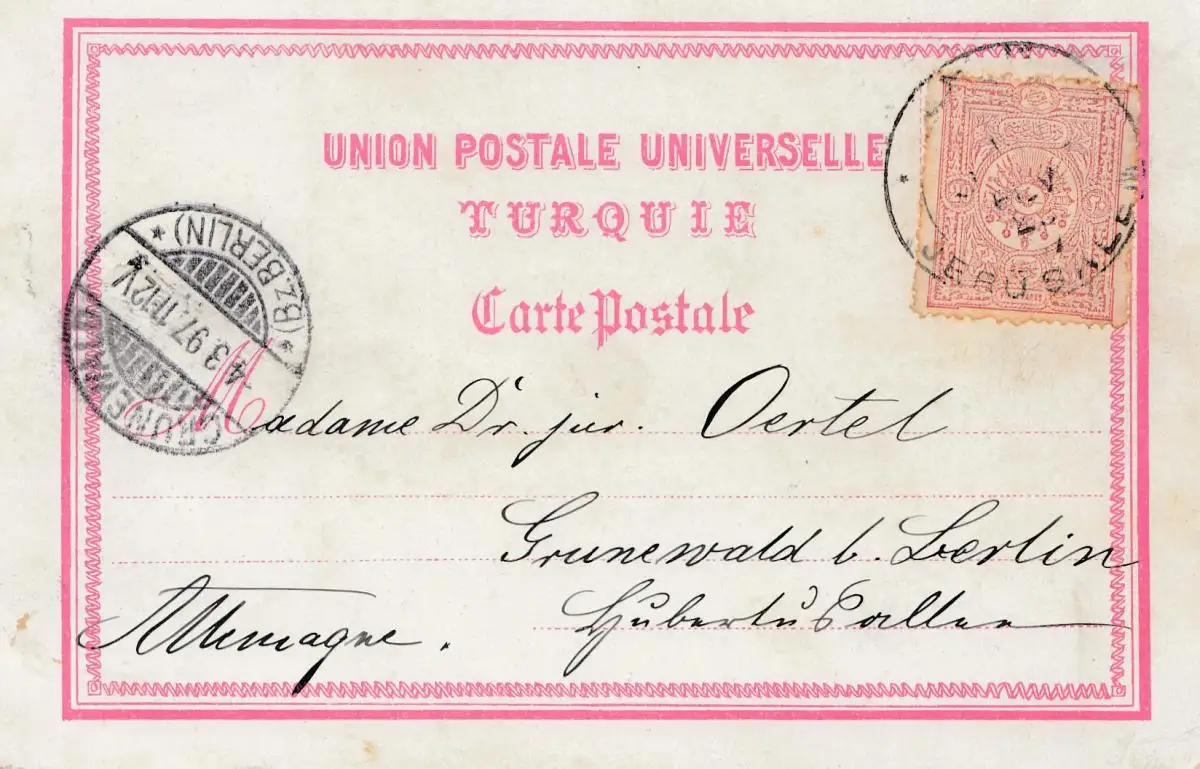 UNION POSTALE UNIVERSELLE
TURQUIE
Carte Postale
JERUSALEM
* (BZ. BERLIN) *
4 3 97. 11-12 V
GRUNEWALD
Madame Dr. jur. Oertel
Grunewald b. Berlin
Hubertus Allee
Allemagne.